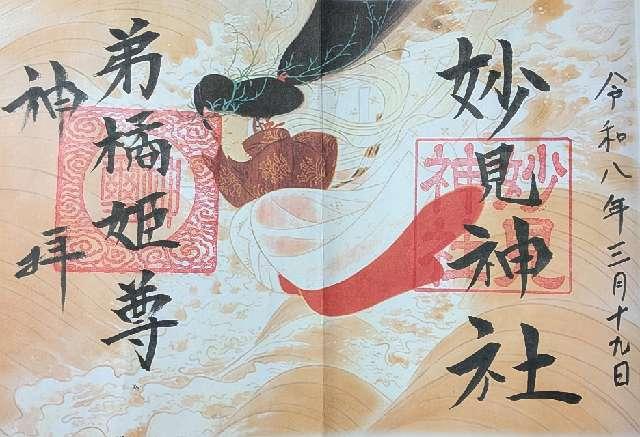 令和八年三月十九日
妙見神社
弟橘姫尊
神拝
妙見
神社